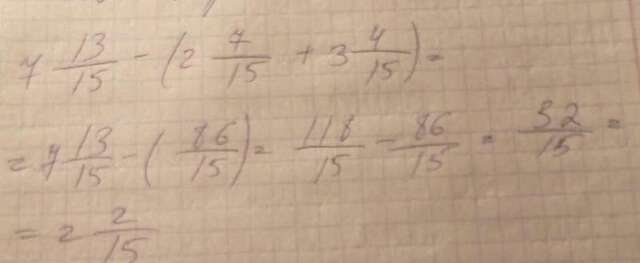 7 13/15 - (2 7/15 + 3 4/15) =
= 7 13/15 - (86/15) = 118/15 - 86/15 = 32/15 =
= 2 2/15